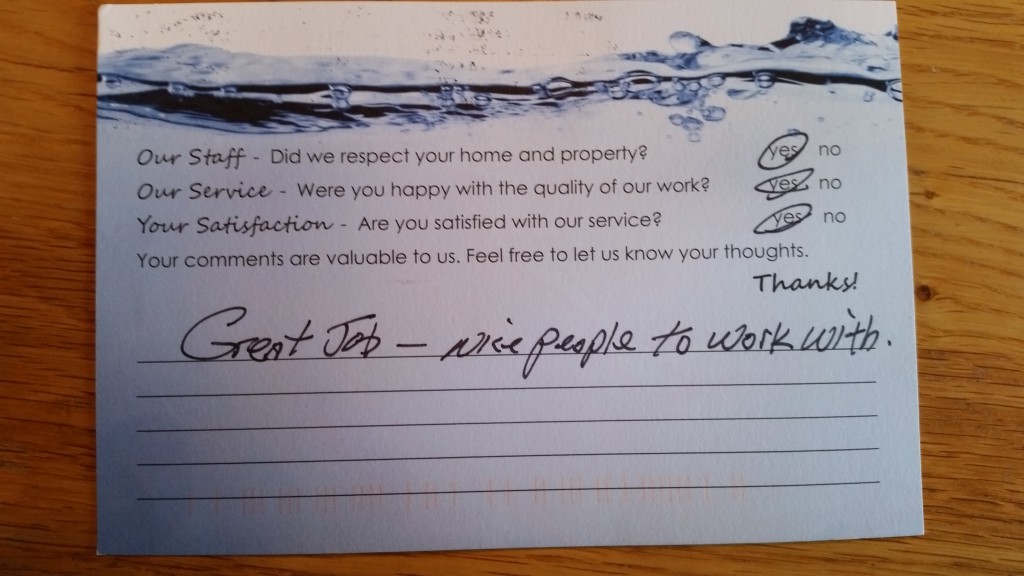 Our Staff - Did we respect your home and property? yes no
Our Service - Were you happy with the quality of our work? yes no
Your Satisfaction - Are you satisfied with our service? yes no
Your comments are valuable to us. Feel free to let us know your thoughts.
Thanks!
Great Job - nice people to work with.